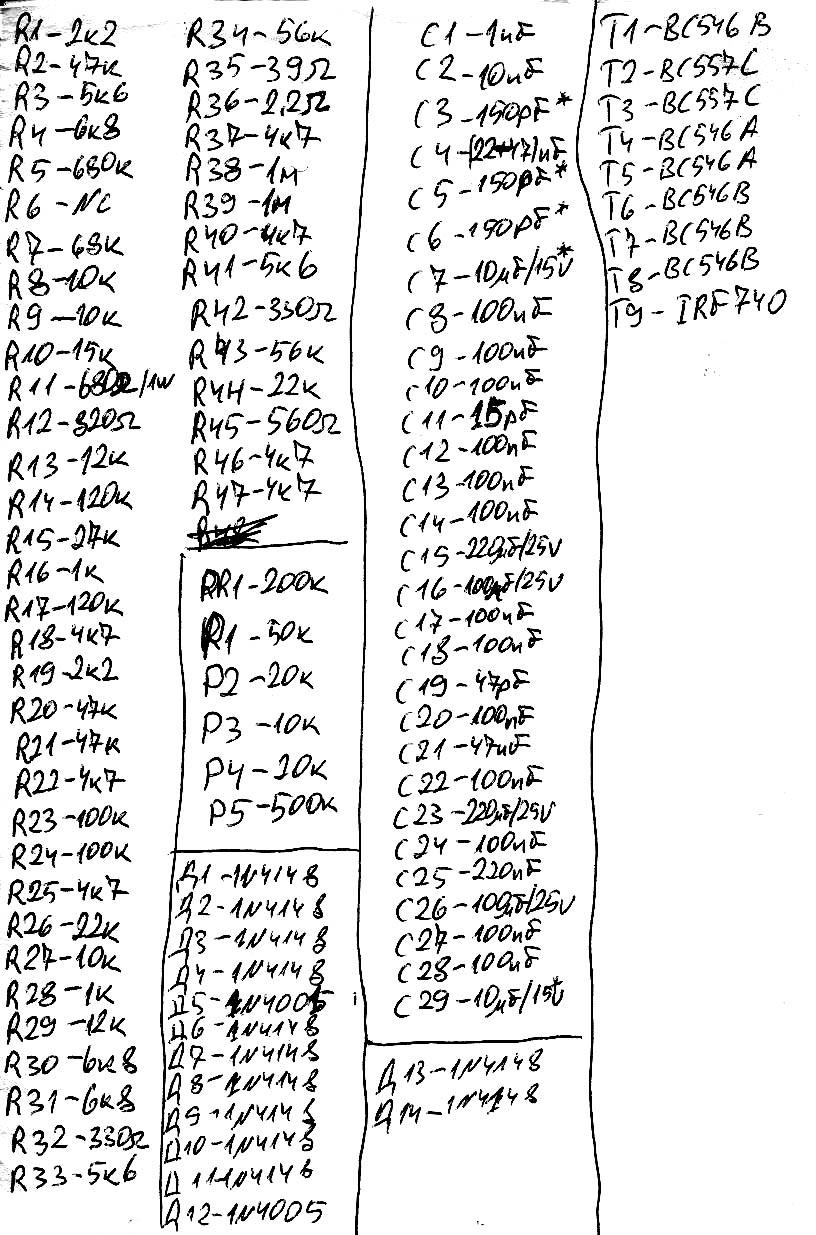 R1-2к2
R2-47к
R3-5к6
R4-6к8
R5-680к
R6-NC
R7-68к
R8-10к
R9-10к
R10-15к
R11-680Ω/1w
R12-820Ω
R13-12к
R14-120к
R15-27к
R16-1к
R17-120к
R18-4к7
R19-2к2
R20-47к
R21-47к
R22-4к7
R23-100к
R24-100к
R25-4к7
R26-22к
R27-10к
R28-1к
R29-12к
R30-6к8
R31-6к8
R32-330Ω
R33-5к6
R34-56к
R35-39Ω
R36-2,2Ω
R37-4к7
R38-1м
R39-1м
R40-4к7
R41-5к6
R42-330Ω
R43-56к
R44-22к
R45-560Ω
R46-4к7
R47-4к7
RR1-200к
P1-50к
P2-20к
P3-10к
P4-20к
P5-500к
Д1-1N4148
Д2-1N4148
Д3-1N4148
Д4-1N4148
Д5-1N4005
Д6-1N4148
Д7-1N4148
Д8-1N4148
Д9-1N4148
Д10-1N4148
Д11-1N4148
Д12-1N4005
C1-1nF
C2-10nF
C3-150pF*
C4-(22+47)nF
C5-150pF*
C6-190pF*
C7-10μF/15V*
C8-100nF
C9-100nF
C10-100nF
C11-15pF
C12-100nF
C13-100nF
C14-100nF
C15-220μF/25V
C16-100μF/25V
C17-100nF
C18-100nF
C19-47pF
C20-100nF
C21-47nF
C22-100nF
C23-220μF/25V
C24-100nF
C25-220nF
C26-100μF/25V
C27-100nF
C28-100nF
C29-10μF/15V
Д13-1N4148
Д14-1N4148
T1-BC546B
T2-BC557C
T3-BC557C
T4-BC546A
T5-BC546A
T6-BC546B
T7-BC546B
T8-BC546B
T9-IRF740